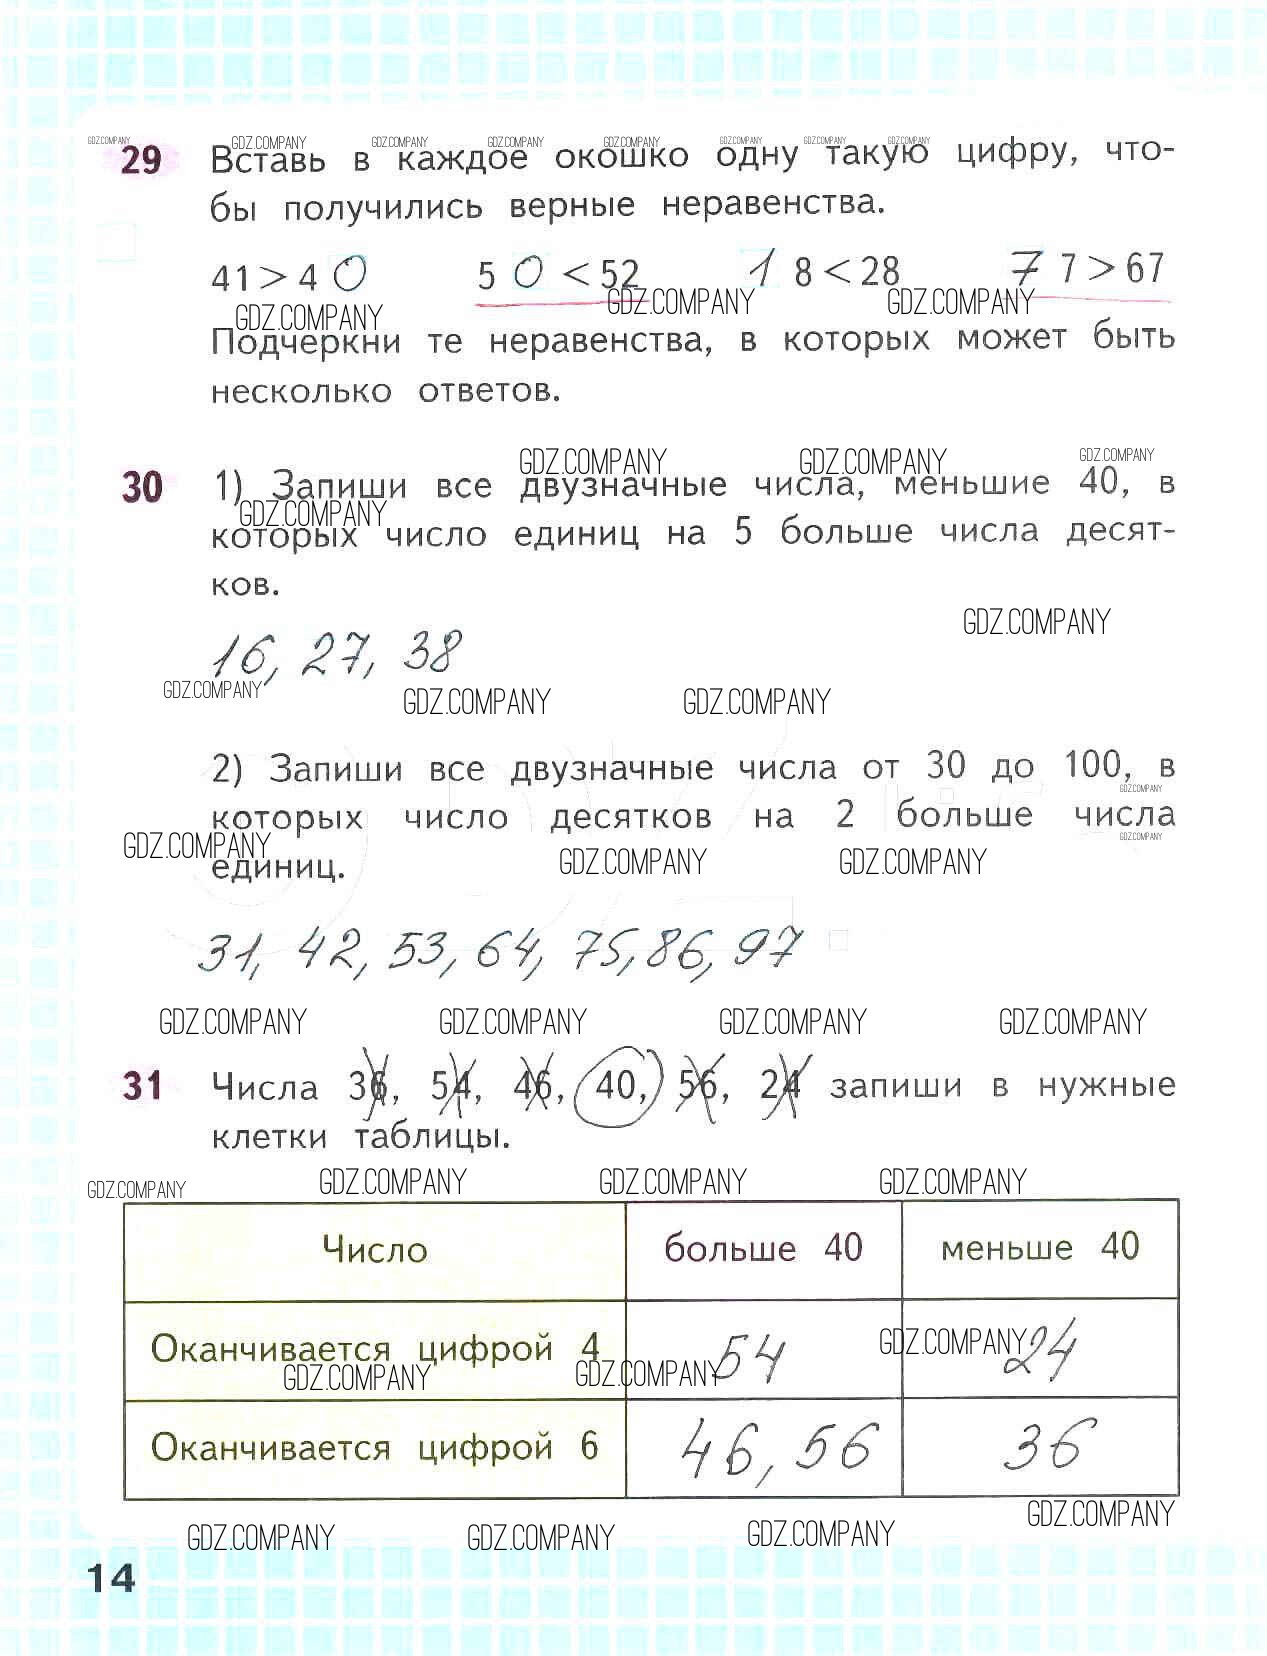 GDZ.COMPANY GDZ.COMPANY GDZ.COMPANY GDZ.COMPANY GDZ.COMPANY GDZ.COMPANY GDZ.COMPANY GDZ.COMPANY
29 Вставь в каждое окошко одну такую цифру, что-
бы получились верные неравенства.
41 > 4 0 5 0 < 52 1 8 < 28 7 7 > 67
GDZ.COMPANY GDZ.COMPANY GDZ.COMPANY
Подчеркни те неравенства, в которых может быть
несколько ответов.
GDZ.COMPANY GDZ.COMPANY GDZ.COMPANY
30 1) Запиши все двузначные числа, меньшие 40, в
GDZ.COMPANY
которых число единиц на 5 больше числа десят-
ков.
GDZ.COMPANY
16, 27, 38
GDZ.COMPANY GDZ.COMPANY GDZ.COMPANY
2) Запиши все двузначные числа от 30 до 100, в
GDZ.COMPANY
которых число десятков на 2 больше числа
GDZ.COMPANY GDZ.COMPANY GDZ.COMPANY GDZ.COMPANY
единиц.
31, 42, 53, 64, 75, 86, 97
GDZ.COMPANY GDZ.COMPANY GDZ.COMPANY GDZ.COMPANY
31 Числа 36, 54, 46, 40, 56, 24 запиши в нужные
клетки таблицы.
GDZ.COMPANY GDZ.COMPANY GDZ.COMPANY GDZ.COMPANY
Число больше 40 меньше 40
Оканчивается цифрой 4 54 24
GDZ.COMPANY GDZ.COMPANY GDZ.COMPANY
Оканчивается цифрой 6 46, 56 36
GDZ.COMPANY GDZ.COMPANY GDZ.COMPANY GDZ.COMPANY
14